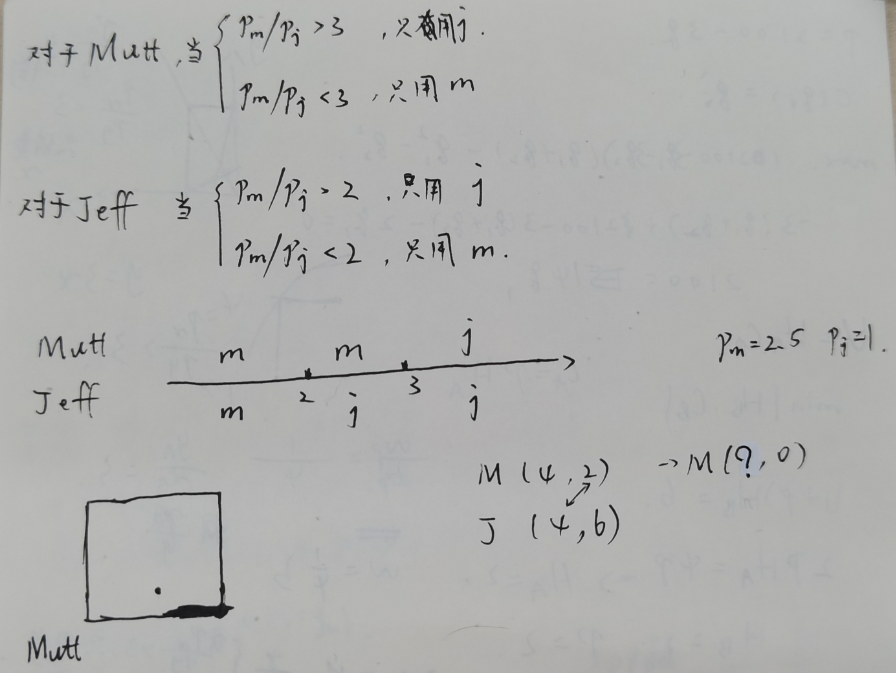 对于Mutt,当 { Pm/Pj >3 ,只用j.
Pm/Pj <3 ,只用m
对于Jeff 当 { Pm/Pj > 2 ,只用 j
Pm/Pj < 2 ,只用m.
Mutt m m j
2 3
Jeff m j j
Pm=2.5 Pj=1.
M (4,2) → M(?,0)
J (4,6)
Mutt